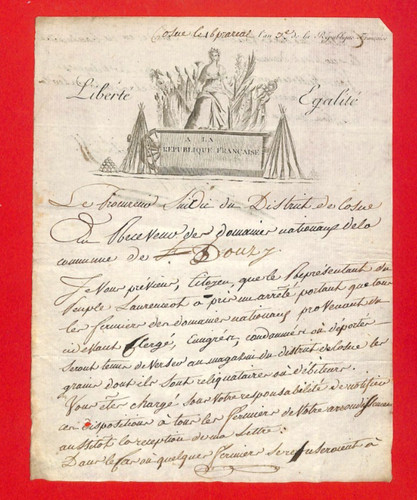 Cosne le 16 prairial l'an 3e. de la République Française
Liberté Egalité
A LA
REPUBLIQUE FRANÇAISE
Le Procureur Sindic du District de Cosne
Au Receveur des domaines nationaux de la
commune de Donzy
Je Vous préviens, Citoyen, que le Représentant du
Peuple Laurenceot a pris un arrêté portant que tous
les fermiers des domaines nationaux provenant du
ci devant Clergé, Emigrés, condamnés ou déportés
seront tenus de verser au magasin du district de Cosne les
grains dont ils sont reliquataires ou débiteurs.
Vous êtes chargé sous votre responsabilité de notifier
ces dispositions à tous les fermiers de votre arrondissement
aussitôt la réception de ma lettre:
Dans le cas où quelques fermiers se refuseroient à